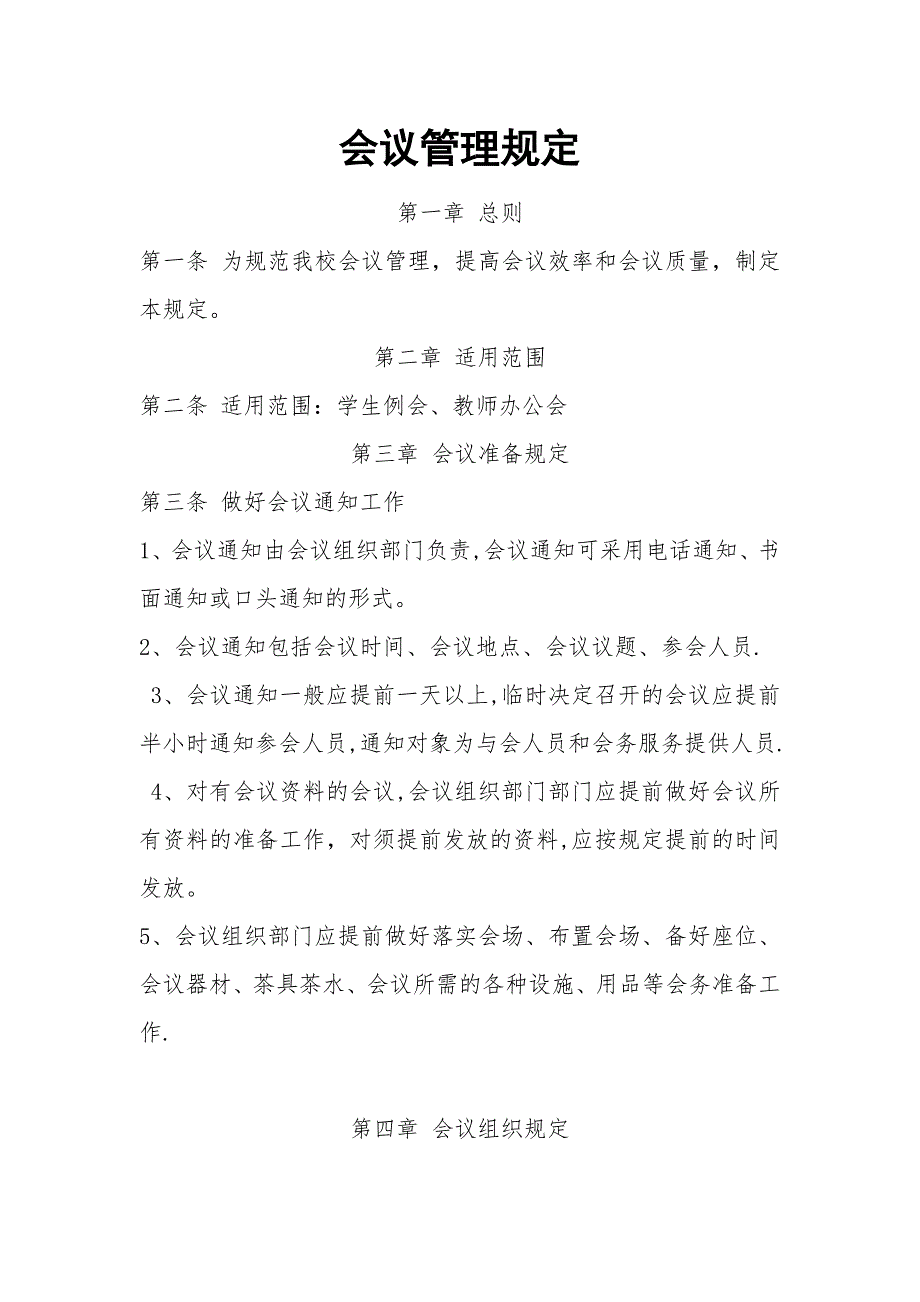 会议管理规定
第一章 总则
第一条 为规范我校会议管理，提高会议效率和会议质量，制定
本规定。
第二章 适用范围
第二条 适用范围：学生例会、教师办公会
第三章 会议准备规定
第三条 做好会议通知工作
1、会议通知由会议组织部门负责,会议通知可采用电话通知、书
面通知或口头通知的形式。
2、会议通知包括会议时间、会议地点、会议议题、参会人员.
3、会议通知一般应提前一天以上,临时决定召开的会议应提前
半小时通知参会人员,通知对象为与会人员和会务服务提供人员.
4、对有会议资料的会议,会议组织部门部门应提前做好会议所
有资料的准备工作，对须提前发放的资料,应按规定提前的时间
发放。
5、会议组织部门应提前做好落实会场、布置会场、备好座位、
会议器材、茶具茶水、会议所需的各种设施、用品等会务准备工
作.
第四章 会议组织规定